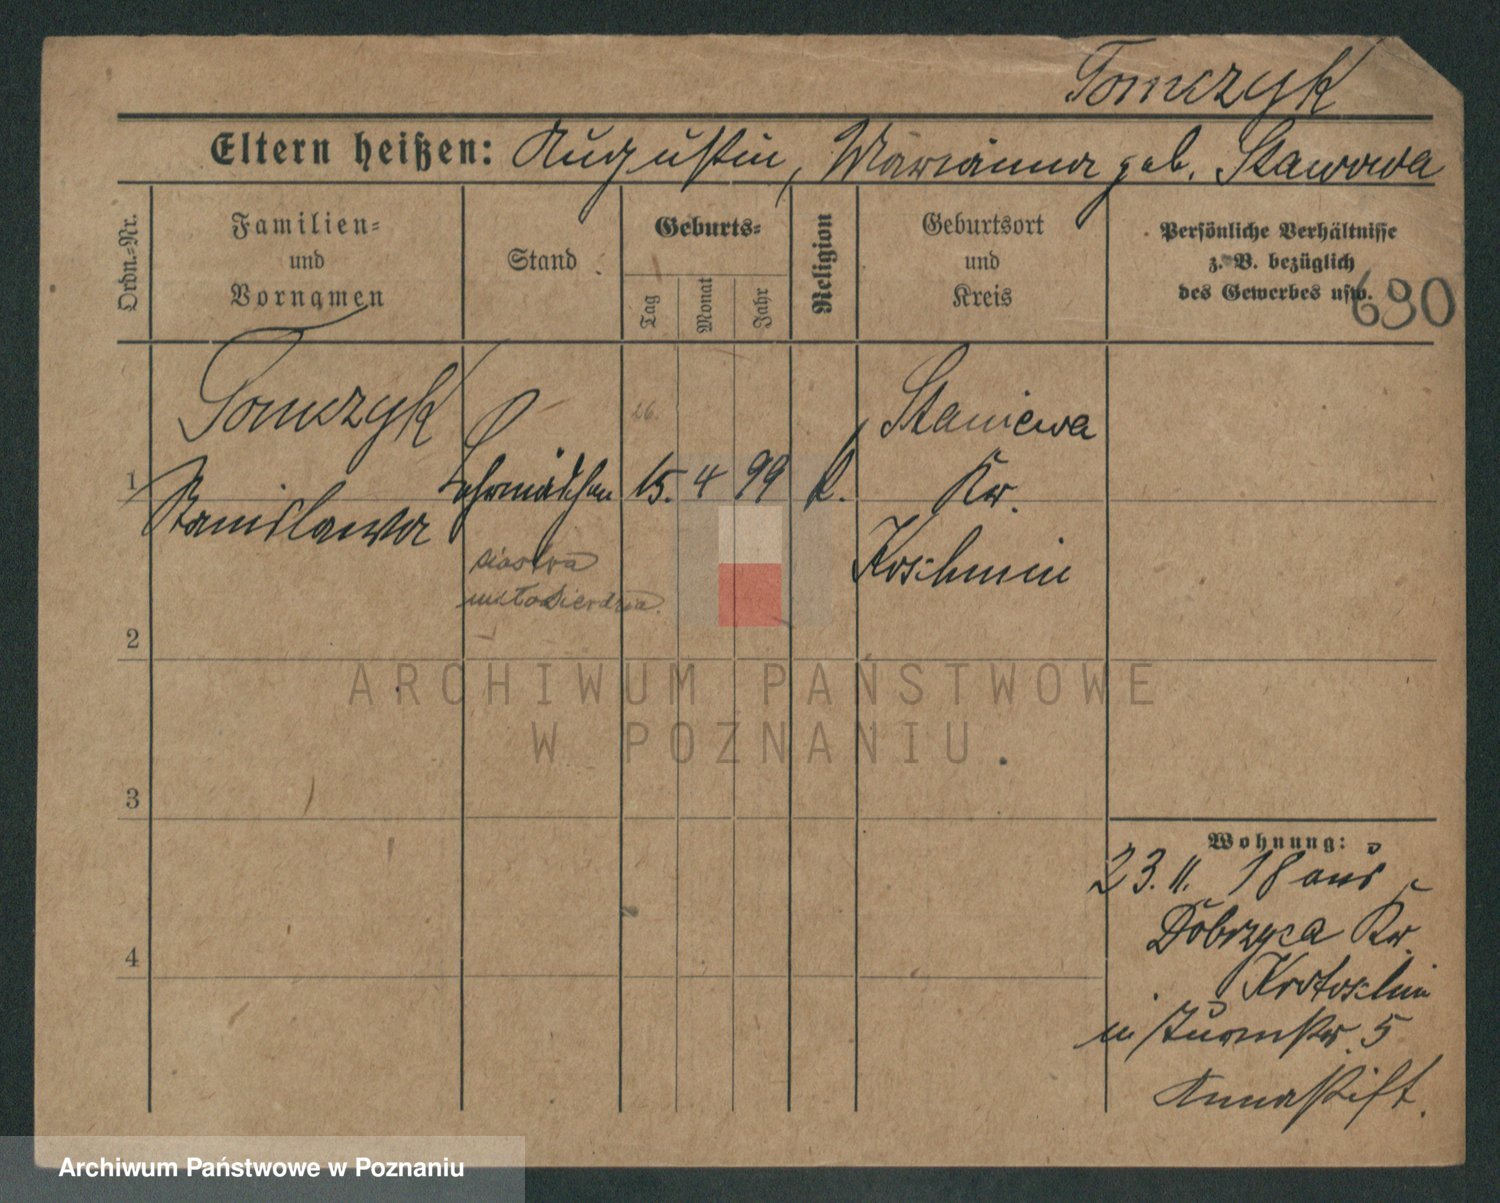 Tomczyk
Eltern heißen: Augustin, Marianna geb. Stawowa
Ordn.-Nr.
Familien-
und
Vornamen
Stand
Geburts-
Tag
Monat
Jahr
Religion
Geburtsort
und
Kreis
Persönliche Verhältnisse
z. B. bezüglich
des Gewerbes usw.
690
Tomczyk
26.
Staniewa
1 Stanislawa Lehrmädchen 15. 4 99 k. Kr.
Koschmin
siostra
miłosierdzia.
2
ARCHIWUM PAŃSTWOWE
W POZNANIU
3
Wohnung:
23. 11. 18 aus
Dobrzyca Kr.
4
Krotoschin
in Turmstr. 5
Annastift.
Archiwum Państwowe w Poznaniu